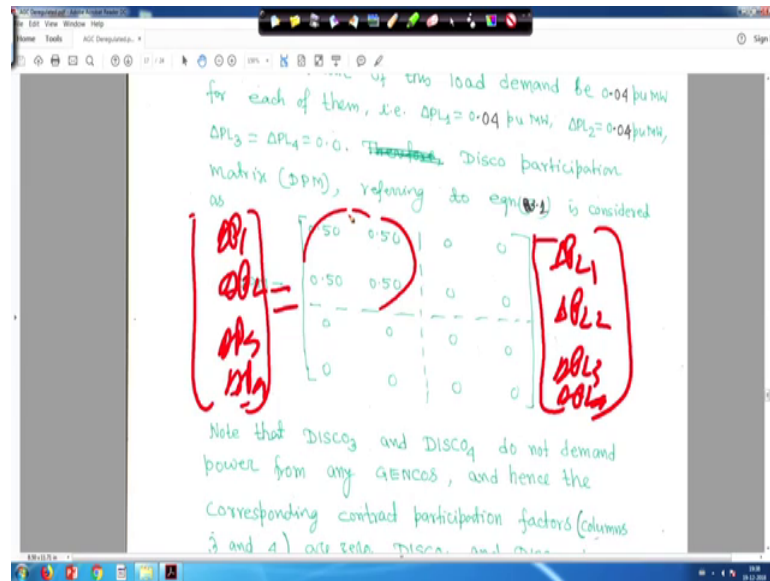 AGC Deregulated.pdf - Adobe Acrobat Reader DC
File Edit View Window Help
Home Tools AGC Deregulated.p... × Sign
17 / 24
of this load demand be 0.04 pu MW
for each of them, i.e. ΔPL1 = 0.04 pu MW, ΔPL2 = 0.04 pu MW,
ΔPL3 = ΔPL4 = 0.0. Therefore, Disco participation
matrix (DPM), referring to eqn is considered
as
0.50 0 0
0.50 0.50 0 0
0 0 0 0
0 0 0 0
ΔPL1
ΔPL2
ΔPL3
Note that DISCO3 and DISCO4 do not demand
power from any GENCOS, and hence the
corresponding contract participation factors (columns
3 and 4) are zero. DISCO1 and
8.50 x 11.71 in